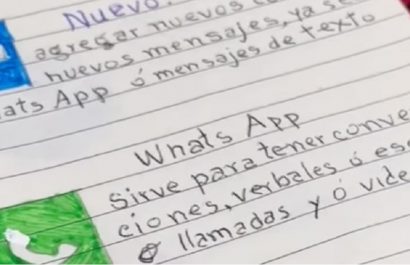 Nuevo.
agregar nuevos
nuevos mensajes, ya se
ats App ó mensajes de texto
Whats App
Sirve para tener conve
ciones, verbales ó es
llamadas y ó vide